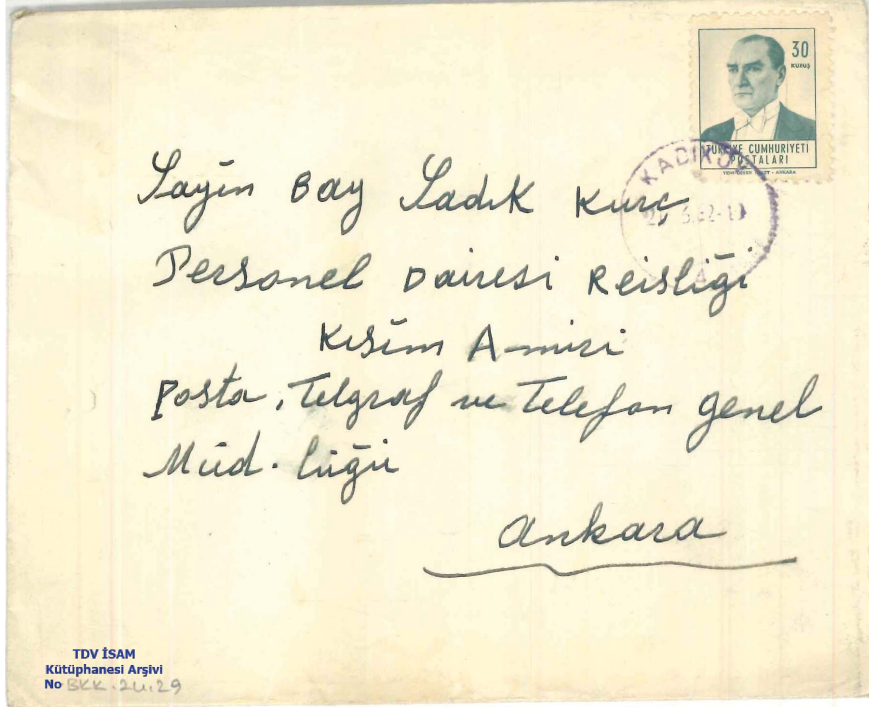 30
KURUŞ
TÜRKİYE CUMHURİYETİ
POSTALARI
KADIKÖY
Sayın Bay Sadık Kurc
Personel Dairesi Reisliği
Kısım Amiri
Posta, Telgraf ve Telefon Genel
Müd. lüğü
Ankara
TDV İSAM
Kütüphanesi Arşivi
No BKK.24.29